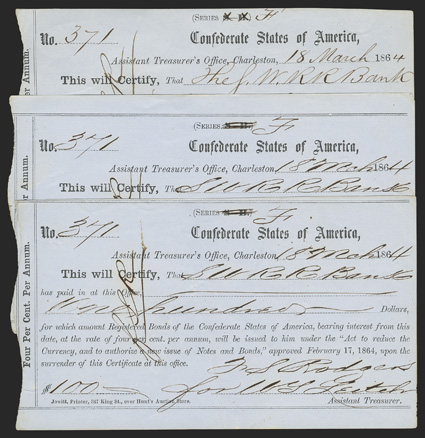 (Series X X) F
No. 371 Confederate States of America,
Assistant Treasurer's Office, Charleston, 18 March 1864
This will Certify, That The S. W. R R Bank
er Annum.
(Series) F
No. 371 Confederate States of America,
Assistant Treasurer's Office, Charleston 18 Mch 1864
This will Certify, Tha S W R R Bank
Per Annum.
(Series) F
No. 371 Confederate States of America,
Assistant Treasurer's Office, Charleston, 18 Mch 1864
This will Certify, Tha S W R R Bank
has paid in at this Office
hundred Dollars,
for which amount Registered Bonds of the Confederate States of America, bearing interest from this
date, at the rate of four per cent. per annum, will be issued to him under the "Act to reduce the
Currency, and to authorize a new issue of Notes and Bonds," approved February 17, 1864, upon the
surrender of this Certificate at this office.
Rodgers
$100 for
Jowitt, Printer, 247 King St., over Hunt's Auction Store. Assistant Treasurer.
Four Per Cent. Per Annum.